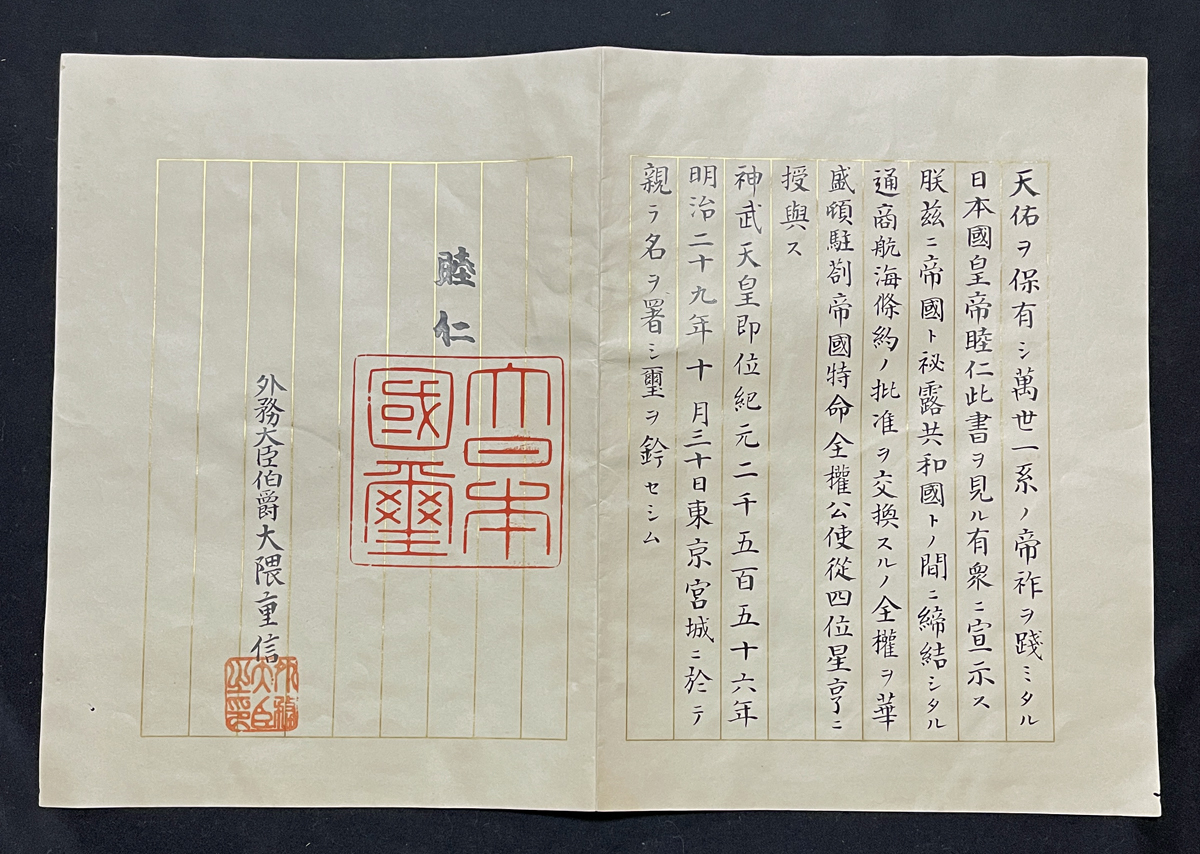 天佑ヲ保有シ萬世一系ノ帝祚ヲ踐ミタル
日本國皇帝睦仁此書ヲ見ル有衆ニ宣示ス
朕茲ニ帝國ト祕露共和國トノ間ニ締結シタル
通商航海條約ノ批准ヲ交換スルノ全權ヲ華
盛頓駐剳帝國特命全權公使從四位星亨ニ
授與ス
神武天皇即位紀元二千五百五十六年
明治二十九年十月三十日東京宮城ニ於テ
親ラ名ヲ署シ璽ヲ鈐セシム
睦仁
大日本
國璽
外務大臣伯爵大隈重信
外務
大臣
之印